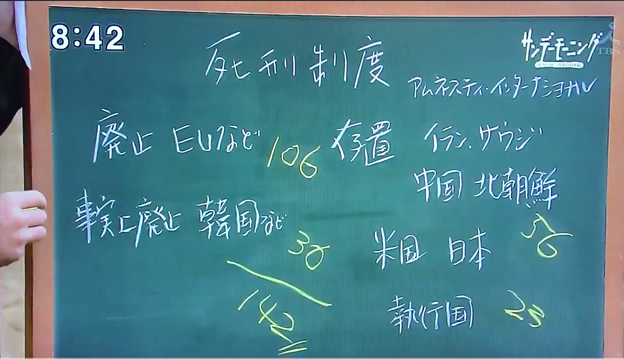 8:42
サンデーモーニング
TBS
死刑制度
アムネスティ・インターナショナル
廃止 EUなど 106
存置 イラン、サウジ
中国 北朝鮮
事実上廃止 韓国など 36
米国 日本 56
142
執行国 23